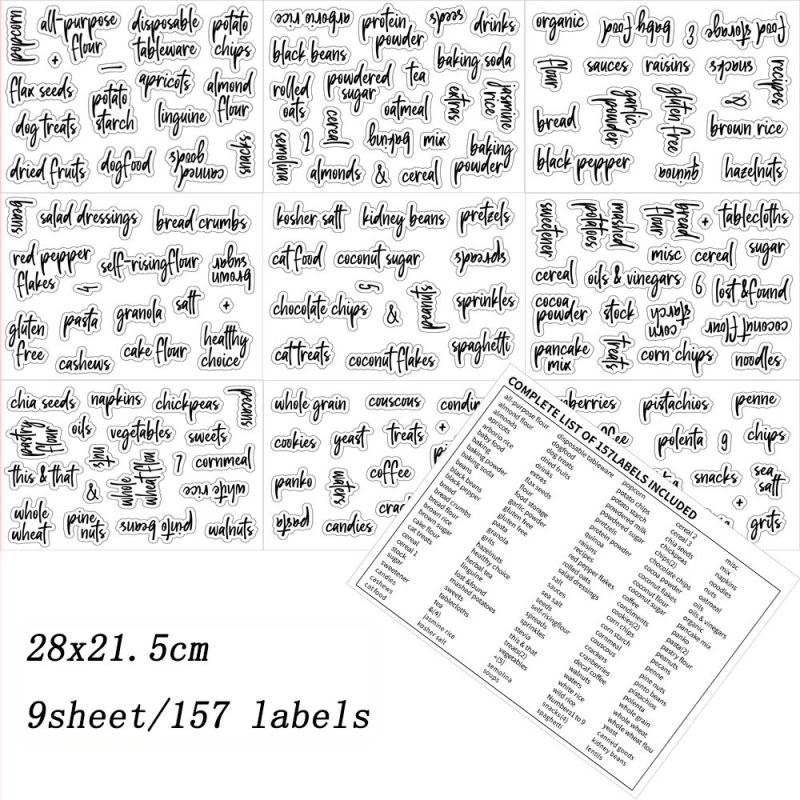 popcorn
all-purpose
flour
disposable
tableware
potato
chips
+
1
flax seeds
potato
starch
apricots
almond
flour
dog treats
linguine
dried fruits
dogfood
canned
goods
snacks
arborio rice
protein
powder
seeds
drinks
black beans
baking soda
rolled
oats
powdered
sugar
tea
extras
jasmine
rice
oatmeal
cereal
semolina
2
baking
mix
baking
powder
almonds
&
cereal
organic
baby food
3
food storage
flour
sauces
raisins
snacks
recipes
garlic
powder
gluten free
&
bread
brown rice
black pepper
quinoa
hazelnuts
beans
salad dressings
bread crumbs
red pepper
flakes
self-risingflour
brown
sugar
4
salt
+
gluten
free
pasta
granola
healthy
choice
cashews
cake flour
kosher salt
kidney beans
pretzels
cat food
coconut sugar
spreads
5
chocolate chips
&
peanuts
sprinkles
cat treats
coconut flakes
spaghetti
sweetener
mashed
potatoes
bread
flour
+
tablecloths
misc
cereal
sugar
cereal
oils & vinegars
6
lost & found
cocoa
powder
stock
corn
starch
coconut flour
pancake
mix
treats
corn chips
noodles
chia seeds
napkins
chickpeas
pecans
pastry
flour
oils
vegetables
sweets
this & that
nuts
7
cornmeal
&
whole
wheat flou
white rice
whole
wheat
pine
nuts
pinto beans
walnuts
whole grain
couscous
condim
cookies
yeast
treats
+
panko
waters
coffee
pasta
candies
crac
nberries
pistachios
penne
polenta
9
chips
ka
snacks
sea
salt
+
grits
COMPLETE LIST OF 157LABELS INCLUDED
all-purpose flour
almond flour
almonds
apricots
arborio rice
baby food
baking
baking powder
baking soda
beans
black beans
black pepper
bread
bread crumbs
bread flour
brown rice
brown sugar
cake flour
cat treats
cereal 1
stock
sugar
sweetener
candies
cashews
cat food
disposable tableware
dogfood
dog treats
dried fruits
drinks
extras
flax seeds
flour
food storage
garlic powder
gluten free
gluten free
pasta
granola
grits
hazelnuts
healthy choice
herbal tea
linguine
lost &found
mashed potatoes
sweets
tablecloths
tea
&(4)
jasmine rice
kosher salt
popcorn
potato chips
potato starch
powdered milk
powdered sugar
pretzels
protein powder
quinoa
raisins
recipes
red pepper flakes
rolled oats
salad dressings
salt
sauces
sea salt
seeds
self-risingflour
spreads
sprinkles
stevia
this & that
treats(2)
vegetables
+(5)
semolina
soups
cereal 2
cereal 3
chia seeds
chickpeas
chips(2)
chocolate chips
cocoa powder
coconut flakes
coconut flour
coconut sugar
coffee
condiments
cookies(2)
corn chips
corn starch
cornmeal
couscous
crackers
cranberries
decaf coffee
walnuts
waters
white rice
wild rice
Numbers1 to 9
snacks(4)
spaghetti
misc
mix
napkins
noodles
nuts
oatmeal
oils
oils & vinegars
organic
pancake mix
panko
pasta(2)
pastry flour
peanuts
pecans
penne
pine nuts
pinto beans
pistachios
polenta
whole grain
whole wheat
whole wheat flou
yeast
canned goods
kidney beans
lentils
28x21.5cm
9sheet/157 labels